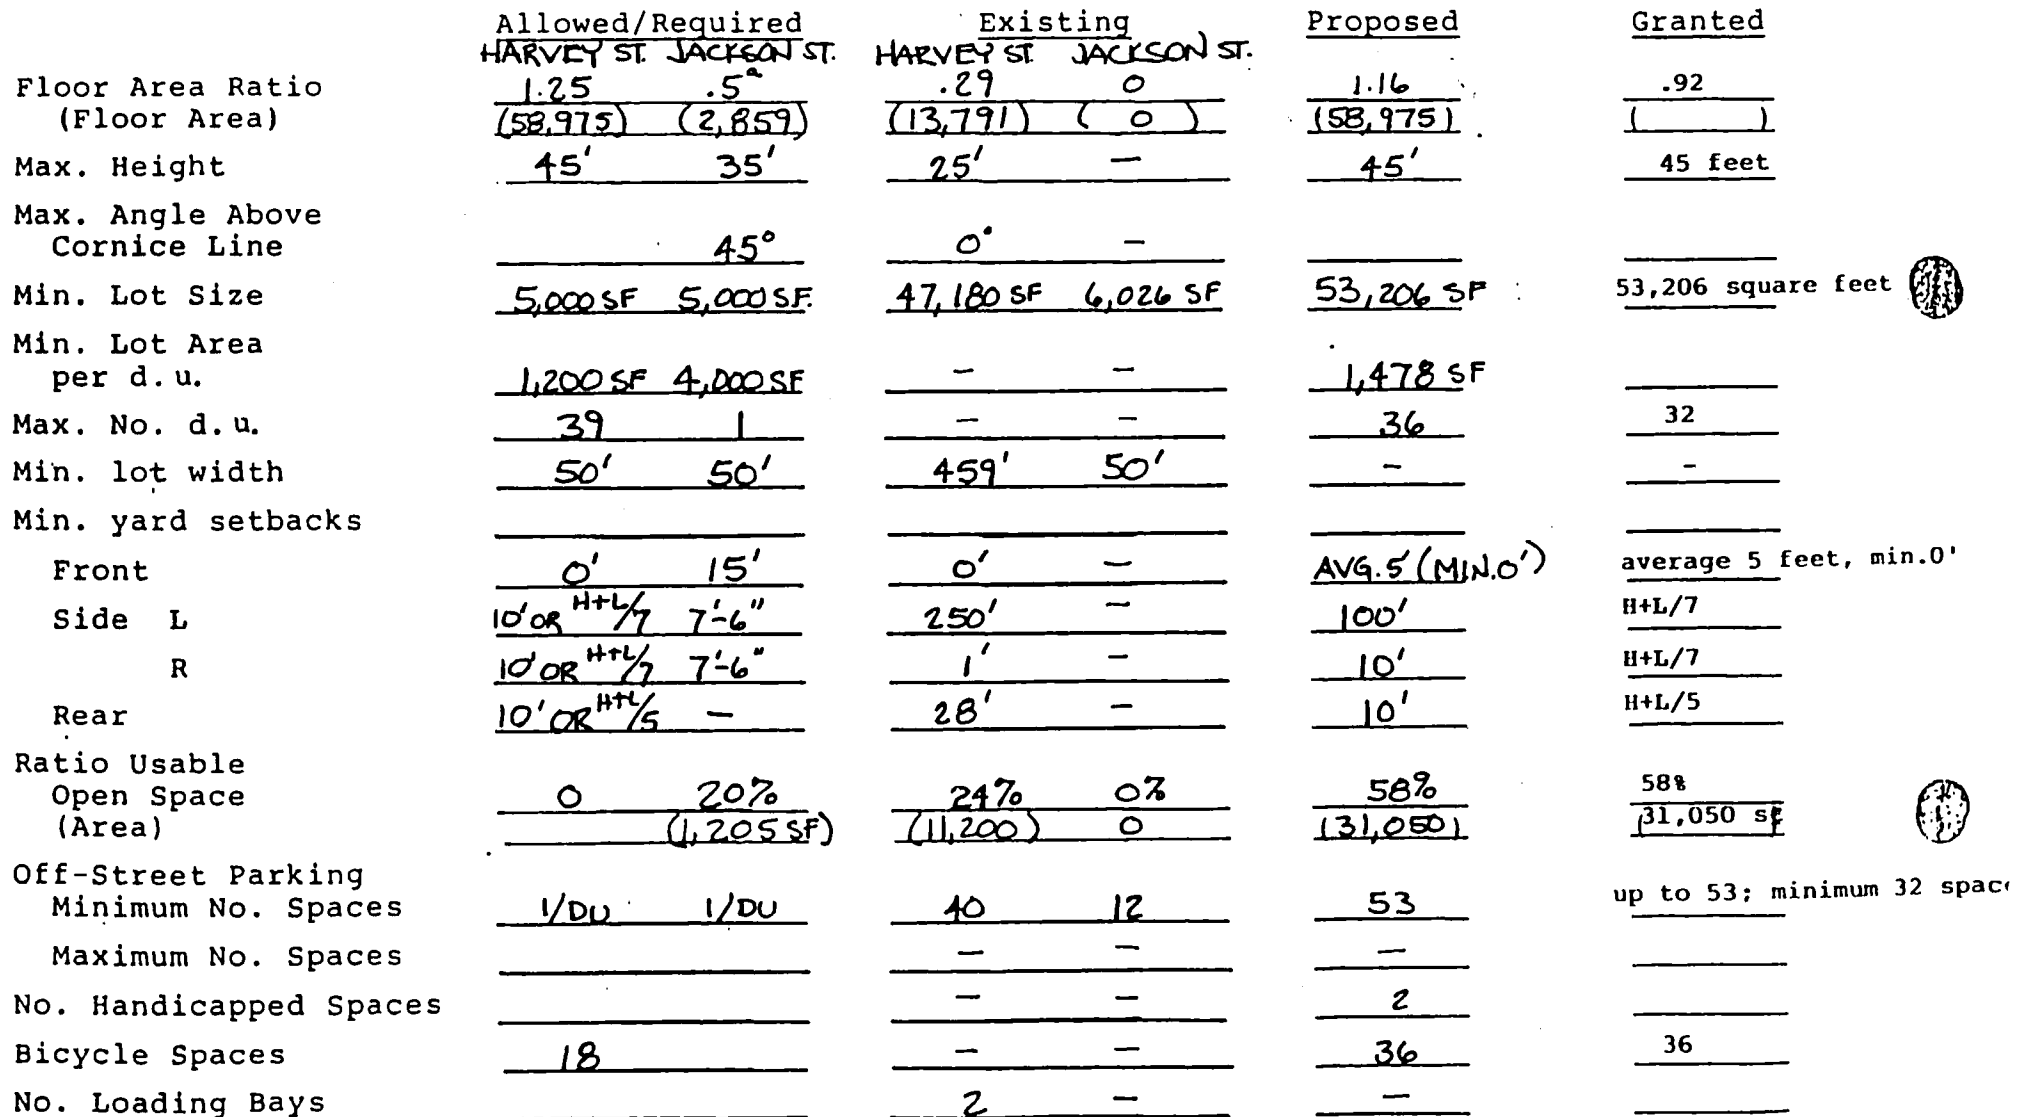 Allowed/Required Existing Proposed Granted
HARVEY ST. JACKSON ST. HARVEY ST JACKSON ST.
Floor Area Ratio 1.25 .5a .29 0 1.16 .92
(Floor Area) (58,975) (2,859) (13,791) (0) (58,975) ( )
Max. Height 45' 35' 25' — 45' 45 feet
Max. Angle Above
Cornice Line 45° 0° —
Min. Lot Size 5,000 SF 5,000 SF. 47,180 SF 6,026 SF 53,206 SF 53,206 square feet
Min. Lot Area
per d.u. 1,200 SF 4,000 SF — — 1,478 SF
Max. No. d.u. 39 1 — — 36 32
Min. lot width 50' 50' 459' 50' — -
Min. yard setbacks
Front 0' 15' 0' — AVG. 5' (MIN. 0') average 5 feet, min.0'
Side L 10' OR H+L/7 7'-6" 250' — 100' H+L/7
R 10' OR H+L/7 7'-6" 1' — 10' H+L/7
Rear 10' OR H+L/5 — 28' — 10' H+L/5
Ratio Usable
Open Space 0 20% 24% 0% 58% 58%
(Area) (1,205 SF) (11,200) 0 (31,050) (31,050 sf
Off-Street Parking
Minimum No. Spaces 1/DU 1/DU 40 12 53 up to 53; minimum 32 spac
Maximum No. Spaces — — —
No. Handicapped Spaces — — 2
Bicycle Spaces 18 — — 36 36
No. Loading Bays 2 — —